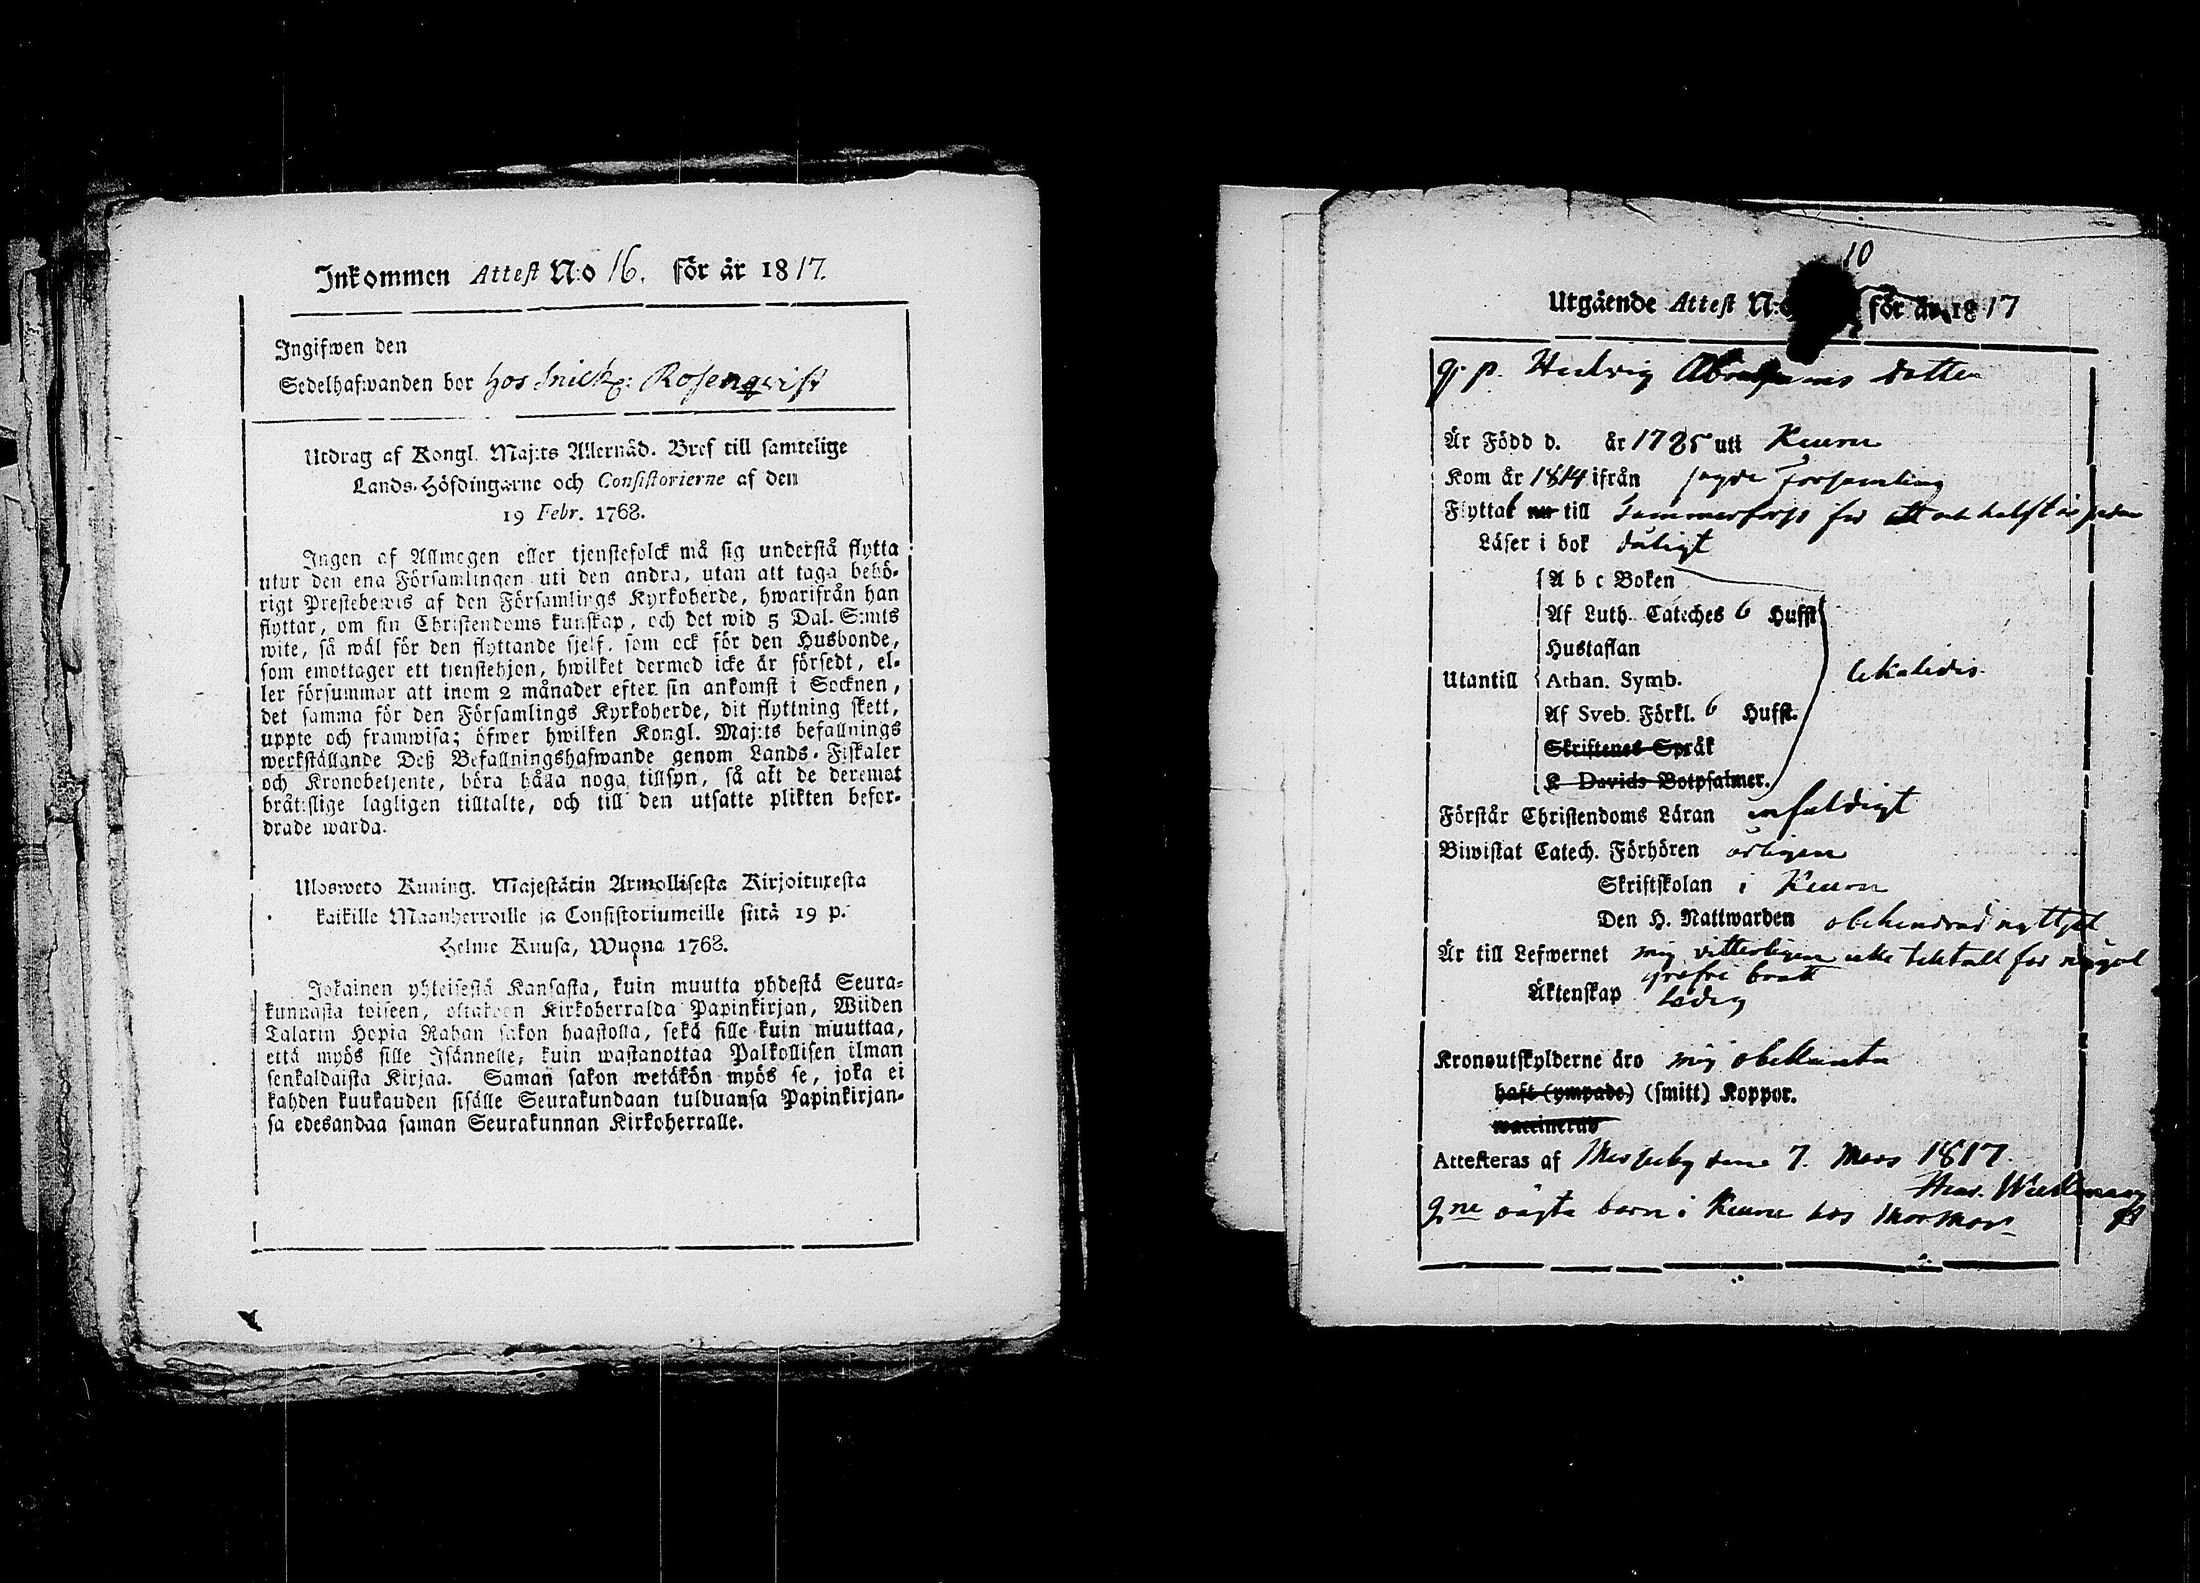 Inkommen Attest N:o 16. för år 1817.
Ingifwen den
Sedelhafwanden bor hos Snick: Rosenqvist
Utdrag af Kongl. Maj:ts Allernåd. Bref till samtelige
Lands-Höfdingarne och Consistorierne af den
19 Febr. 1768.
Ingen af Allmogen eller tjenstefolck må sig understå flytta
utur den ena Församlingen uti den andra, utan att taga behö-
rigt Prestebewis af den Församlings Kyrkoherde, hwarifrån han
flyttar, om sin Christendoms kunskap, och det wid 5 Dal. S:mts
wite, så wäl för den flyttande sjelf, som ock för den Husbonde,
som emottager ett tjenstehjon, hwilket dermed icke är försedt, el-
ler försummar att inom 2 månader efter sin ankomst i Socknen,
det samma för den Församlings Kyrkoherde, dit flyttning skett,
uppte och framwisa; öfwer hwilken Kongl. Maj:ts befallnings
werkställande Deß Befallningshafwande genom Lands-Fiskaler
och Kronobetjente, böra hålla noga tillsyn, så att de deremot
bråtslige lagligen tilltalte, och till den utsatte plikten befor-
drade warda.
Ulosweto Kuning. Majestätin Armollisesta Kirjoituxesta
kaikille Maanherroille ja Consistoriumeille siitä 19 p.
Helme Kuusa, Wuona 1768.
Jokainen yhteisestä Kansasta, kuin muutta yhdestä Seura-
kunnasta toiseen, ottakoon Kirkoherralda Papinkirjan, Wiiden
Talarin Hopia Rahan sakon haastolla, sekä sille kuin muuttaa,
että myös sille Isännelle, kuin wastanottaa Palkollisen ilman
senkaldaista Kirjaa. Saman sakon wetäkön myös se, joka ei
kahden kuukauden sisälle Seurakundaan tulduansa Papinkirjan-
sa edesandaa saman Seurakunnan Kirkoherralle.
10
Utgående Attest N:o för år 1817
q. p. Hedvig Abrahams dotter
Är Född d. år 1785 uti Keuru
Kom år 1814 ifrån sagde Församling
Flyttat nu till Tammerfors för
Läser i bok dåligt
A b c Boken
Af Luth. Cateches 6 Hufst
Hustaflan
Utantill Athan. Symb.
Af Sveb. Förkl. 6 Hufst.
Skriftenes Språk
K Davids Botpsalmer.
Förstår Christendoms Läran enfaldigt
Biwistat Catech. Förhören årligen
Skriftskolan i Keuru
Den H. Nattwarden obehindrad nyttjat
Är till Lefwernet mig vitterligen icke tilltalt för något
grofre brott
Äktenskap ledig
Kronoutskylderne äro mig obekanta
haft (ympade) (smitt) Koppor.
waccinerad
Attesteras af Messuby den 7. Mars 1817.
q.ne oägta barn i Keuru hos Mormor